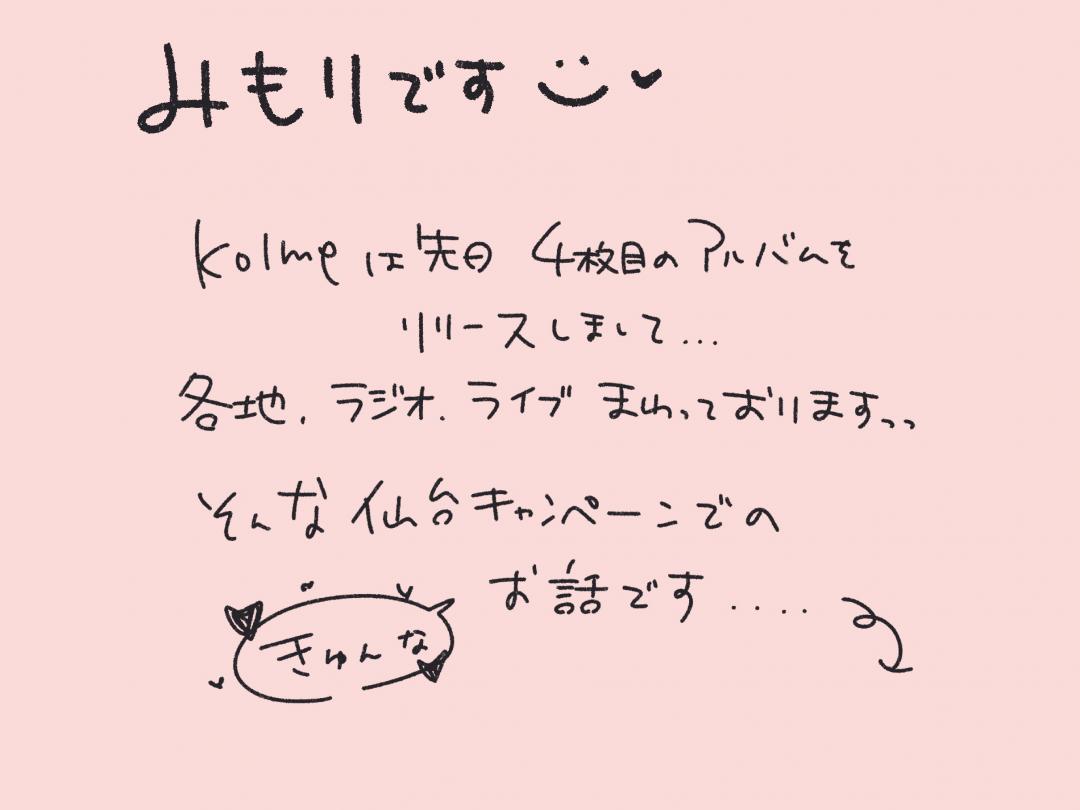 みもりです
kolmeは先日 4枚目のアルバムを
リリースしまして...
各地、ラジオ、ライブ まわっております〜
そんな仙台キャンペーンでの
きゅんな お話です....